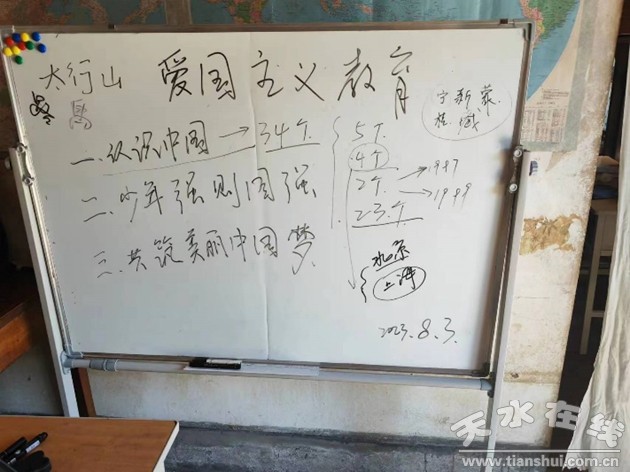 太行山 爱国主义教育
宁 新 蒙
桂 藏
一.认识中国 → 34个
5个
4个
2个 → 1997
→ 1999
23个
二.少年强则国强
三.共筑美丽中国梦
北京
上海
2023.8.3.
天水在线
www.tianshui.com.cn